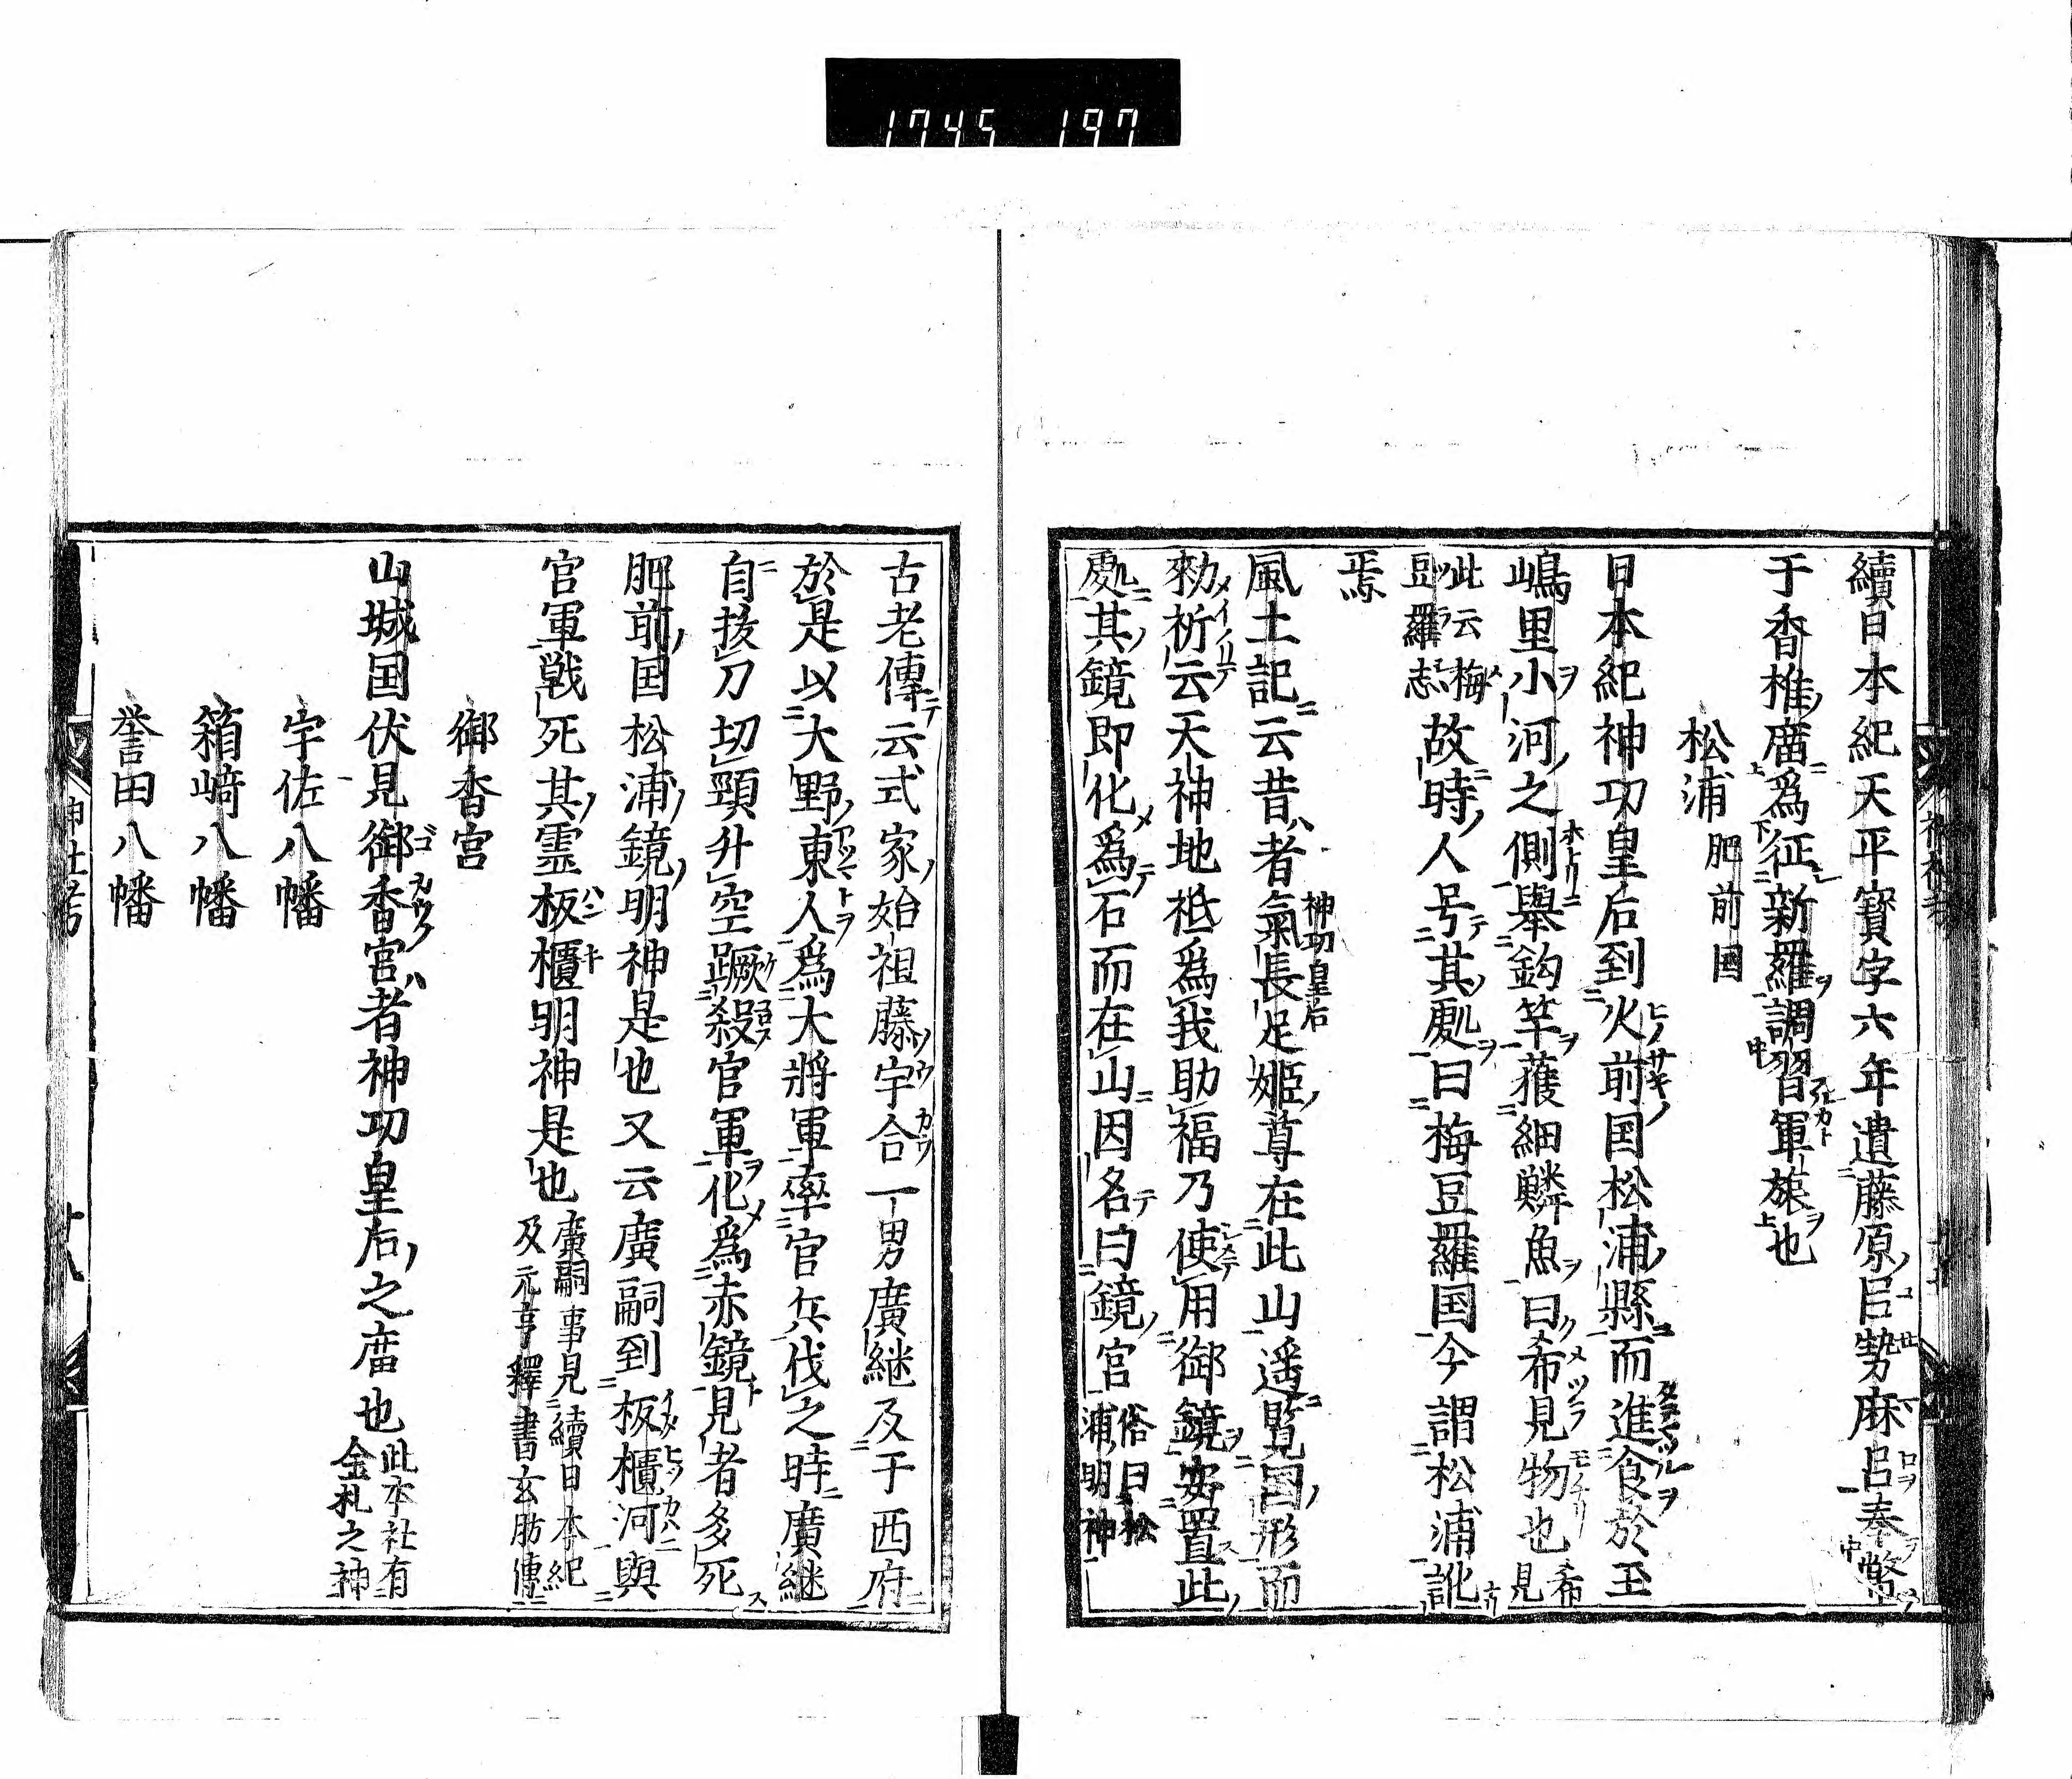 1745 197
續日本紀天平寳字六年遣藤原巨勢麻呂奉幣
于香椎廟爲征新羅調習軍旅也
松浦 肥前國
日本紀神功皇后到火前国松浦縣而進食於玉
嶋里小河之側擧鈎竿獲細鱗魚曰希見物也 希見
此云梅豆羅志 故時人号其處曰梅豆羅国今謂松浦訛
焉
風土記云昔者氣長足姬尊在此山遥覧国形而
神功皇后
勅祈云天神地祇爲我助福乃使用御鏡安置此
處其鏡即化爲石而在山因名曰鏡宮 俗曰松浦明神
古老傳云式家始祖藤宇合一男廣継及于西府
於是以大野東人爲大將軍率官兵伐之時廣継
自拔刀切頸升空蹶殺官軍化爲赤鏡見者多死
肥前国松浦鏡明神是也又云廣嗣到板櫃河與
官軍戦死其霊板櫃明神是也 廣嗣事見續日本紀及元亨釋書玄肪傳
御香宮
山城国伏見御香宮者神功皇后之廟也 此本社有金札之神
宇佐八幡
箱崎八幡
誉田八幡
神社考